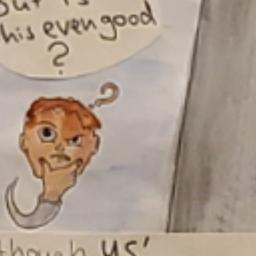 but is
his even good
?
?
though us'